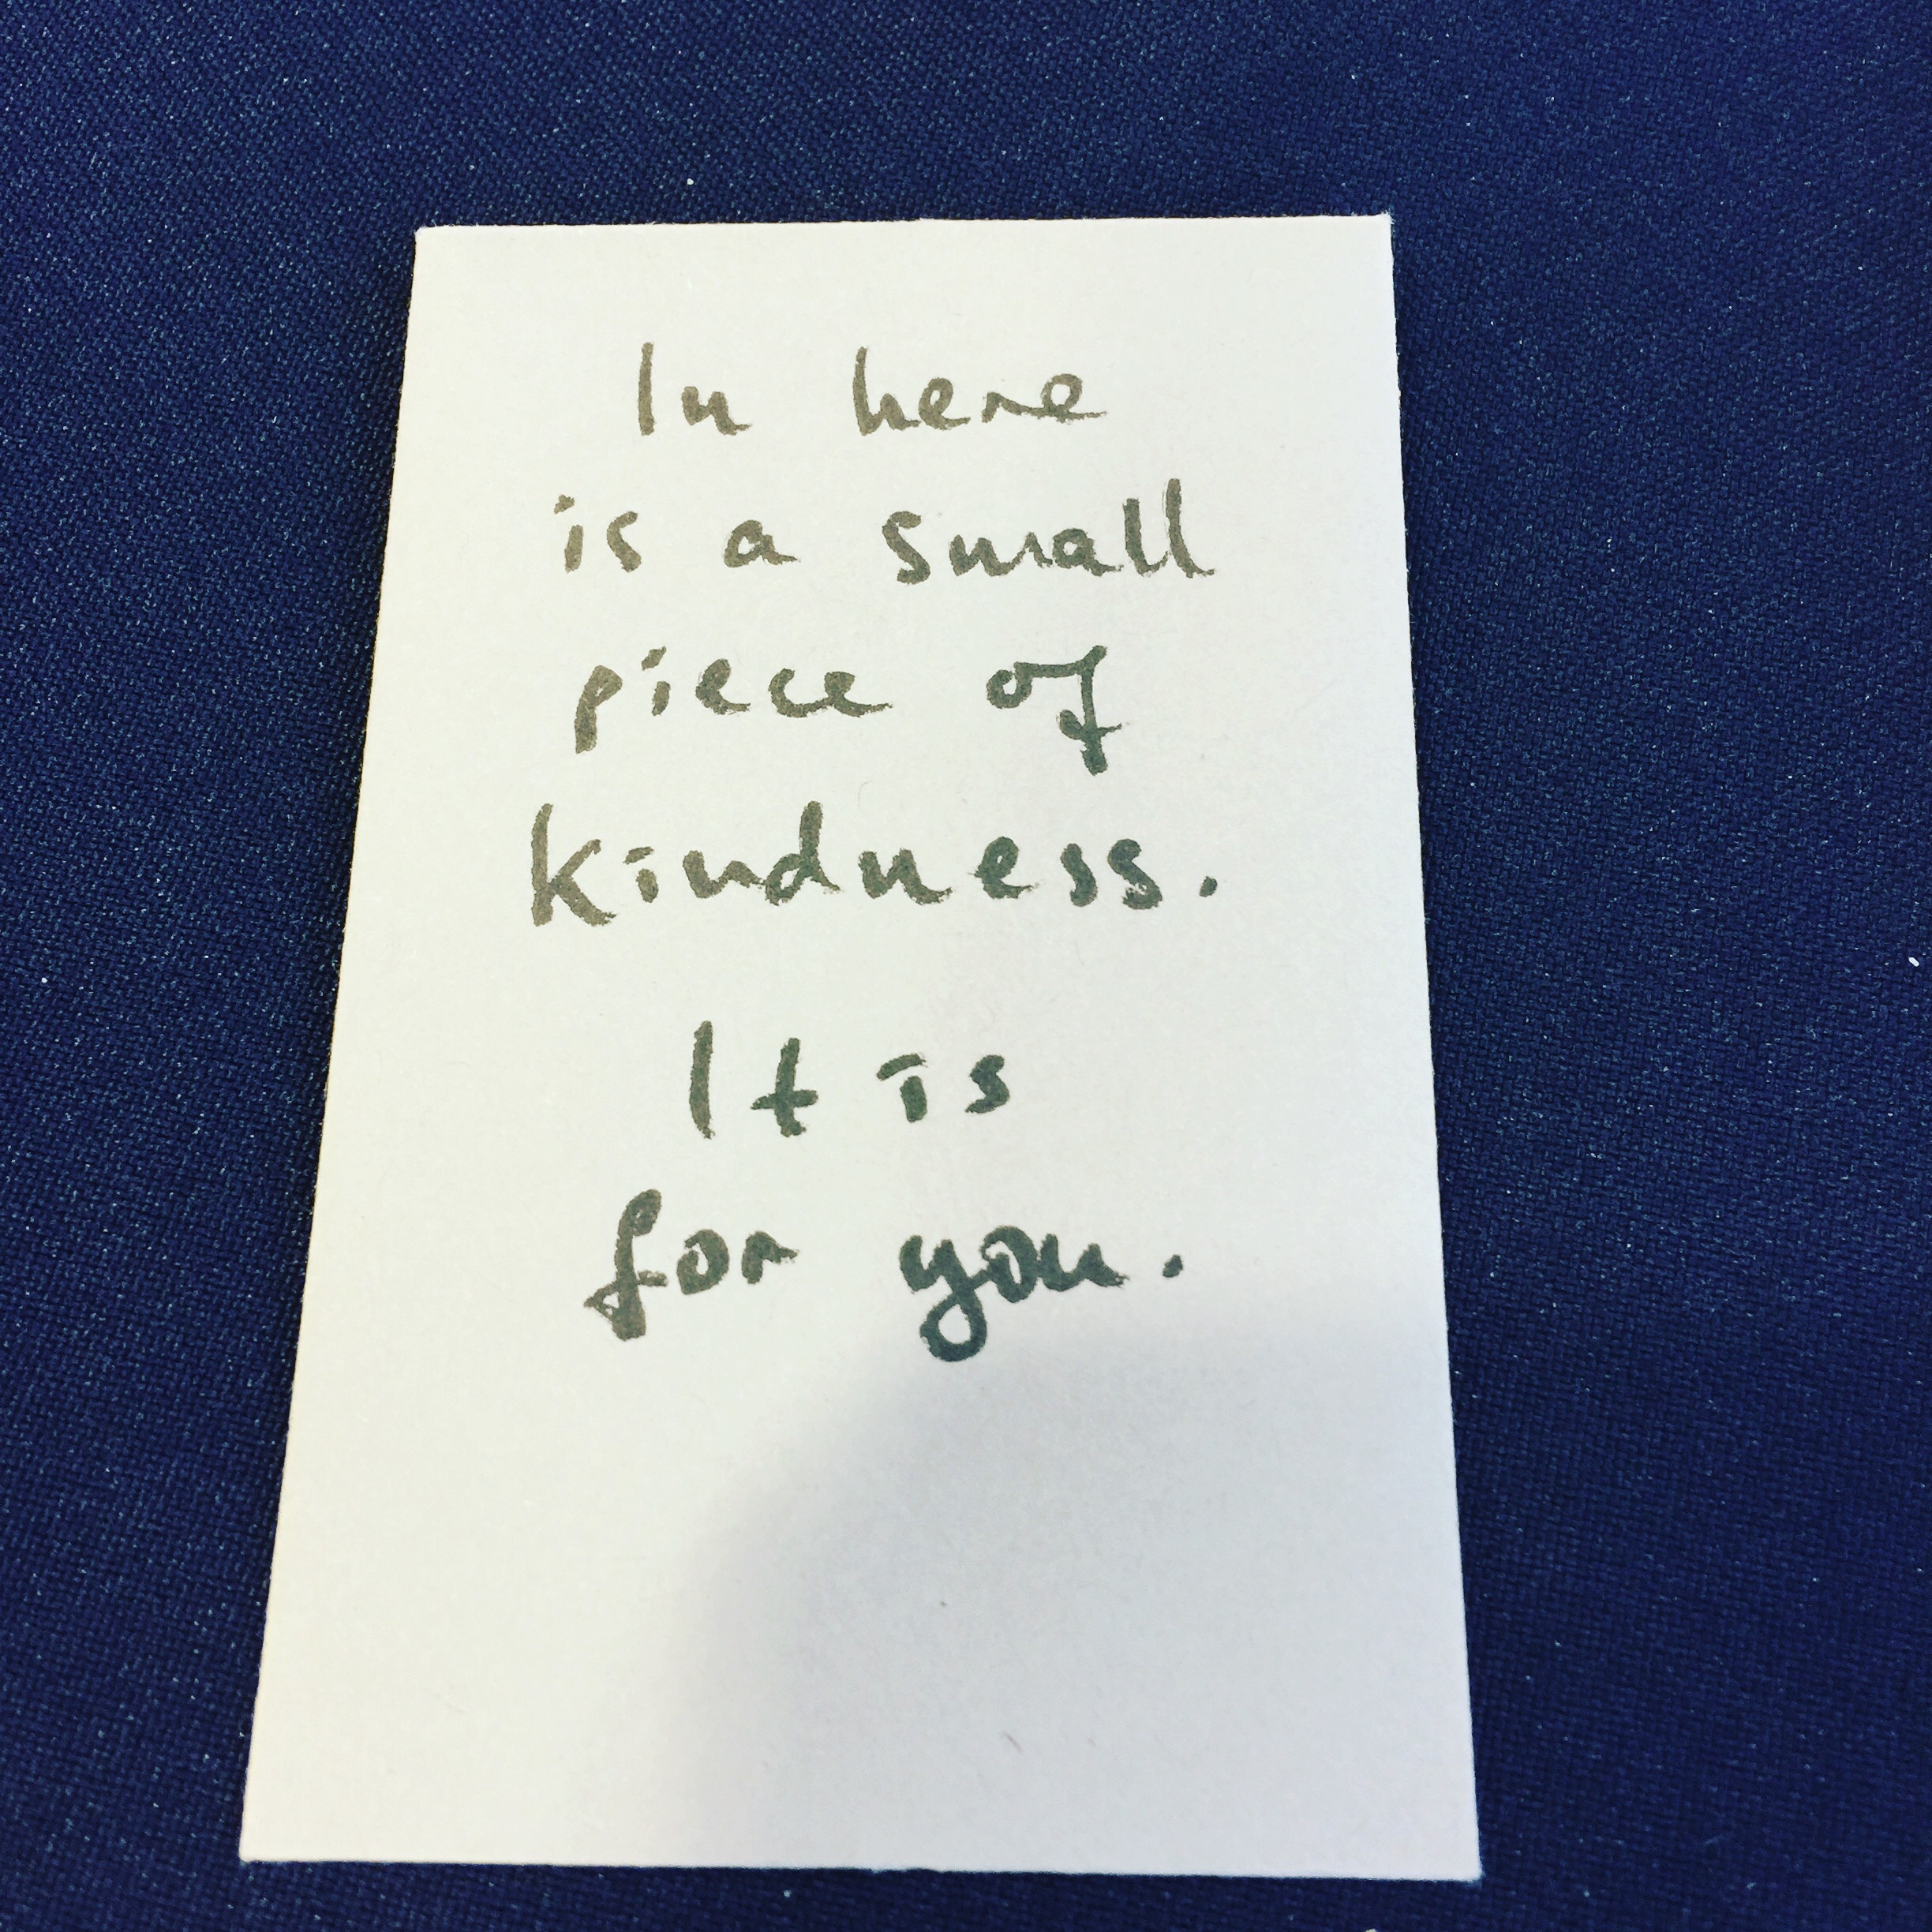 In here
is a small
piece of
kindness.
It is
for you.